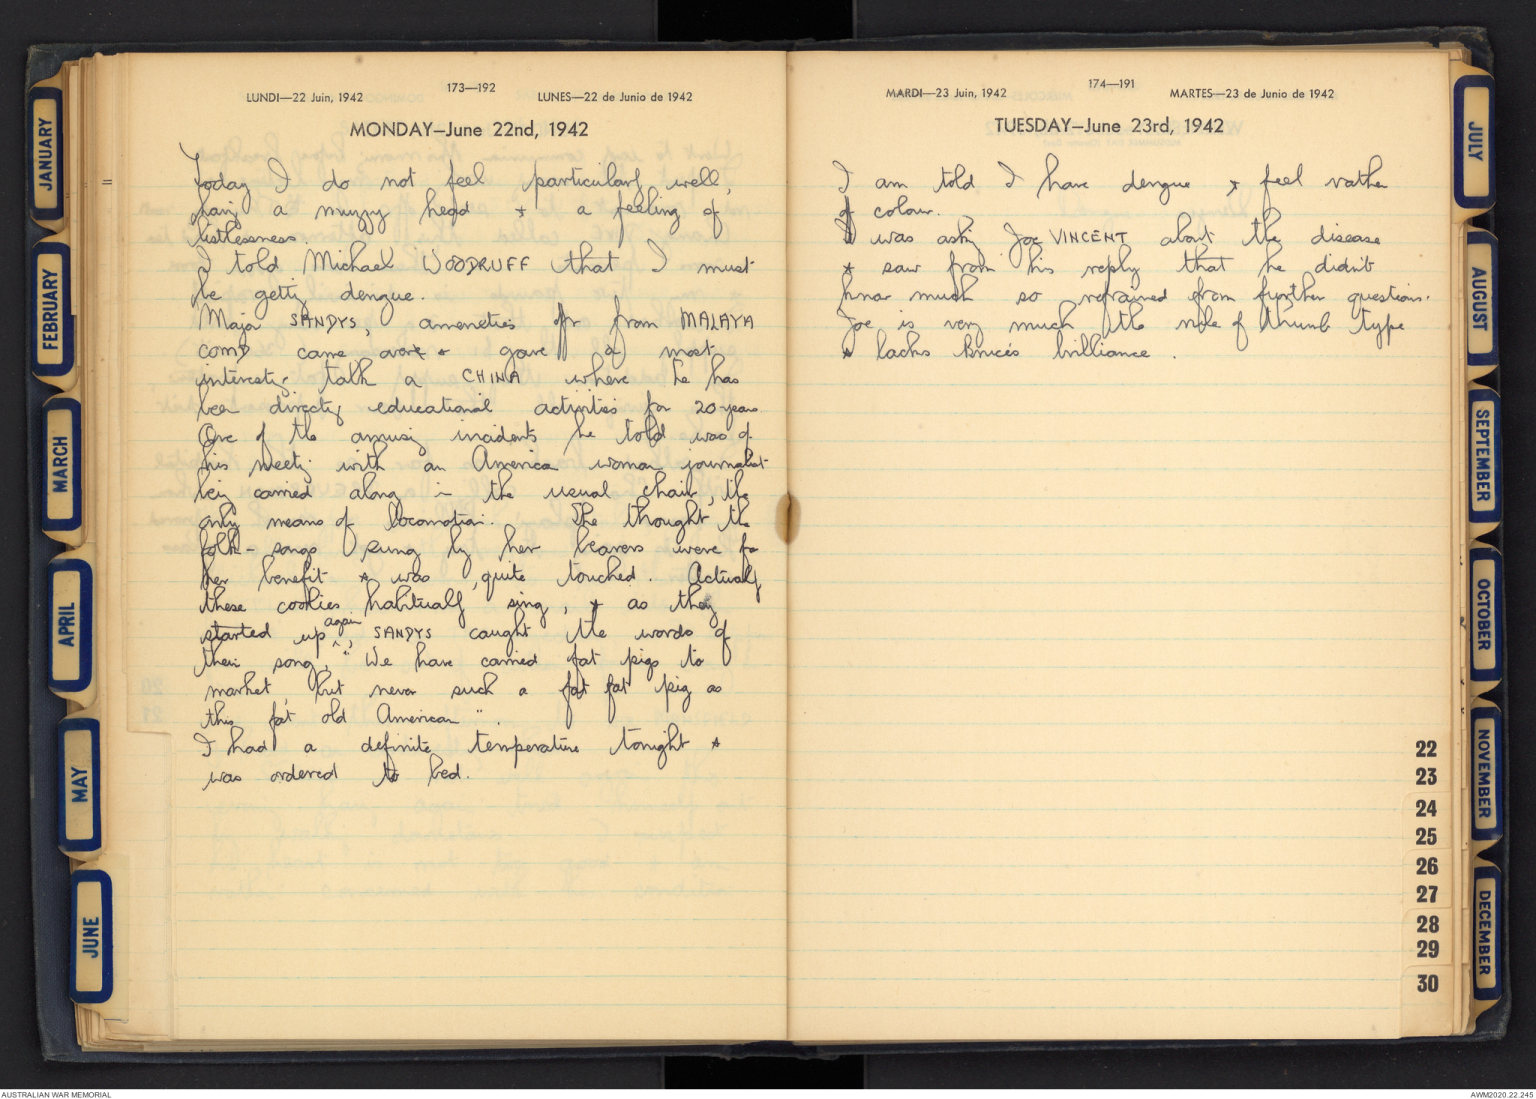 JANUARY
FEBRUARY
MARCH
APRIL
MAY
JUNE
LUNDI—22 Juin, 1942
173—192
LUNES—22 de Junio de 1942
MONDAY—June 22nd, 1942
Today I do not feel particularly well,
having a muzzy head & a feeling of
listlessness.
I told Michael WOODRUFF that I must
be getting dengue.
Major SANDYS, amenities off from MALAYA
COMD came over & gave a most
interesting talk on CHINA where he has
been directing educational activities for 20 years.
One of the amusing incidents he told was of
his meeting with an American woman journalist
being carried along in the usual chair, the
only means of locomotion. She thought the
folk-songs sung by her bearers were for
her benefit & was quite touched. Actually
these coolies habitually sing, & as they
started up again, SANDYS caught the words of
their song, "We have carried fat pigs to
market, but never such a fat fat pig as
this fat old American".
I had a definite temperature tonight &
was ordered to bed.
MARDI—23 Juin, 1942
174—191
MARTES—23 de Junio de 1942
TUESDAY—June 23rd, 1942
I am told I have dengue & feel rather
off colour.
I was asking Joe VINCENT about the disease
& saw from his reply that he didn't
know much so refrained from further questions.
Joe is very much the rule of thumb type
& lacks Bruce's brilliance.
22
23
24
25
26
27
28
29
30
JULY
AUGUST
SEPTEMBER
OCTOBER
NOVEMBER
DECEMBER
AUSTRALIAN WAR MEMORIAL
AWM2020.22.245